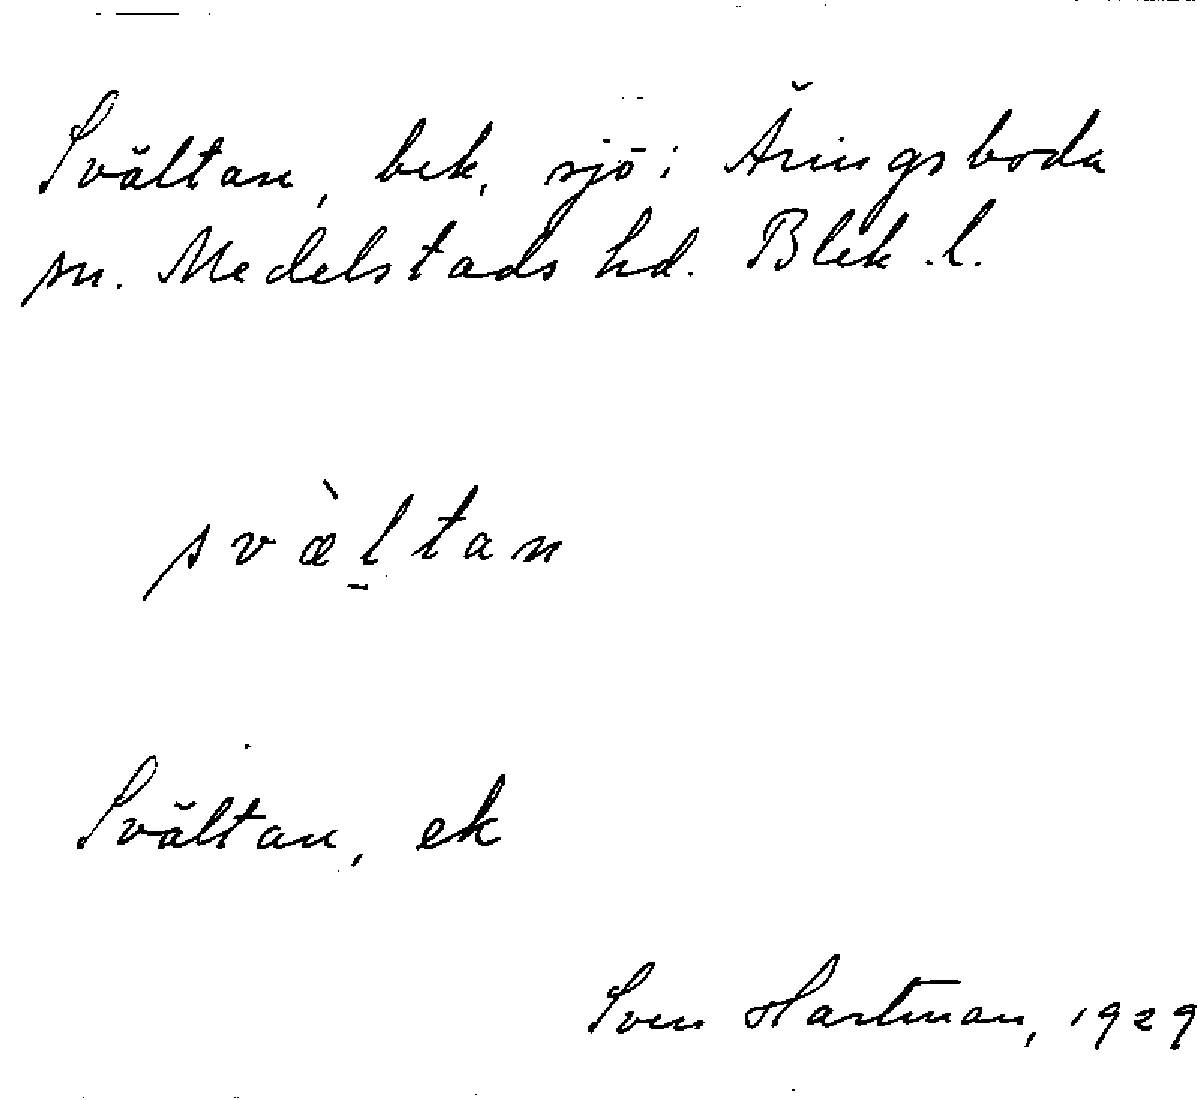 Svältan, bek, sjö i Äringsboda
sn. Medelstads hd. Blek.l.
svæ̀l̠tan
Svältan, ek
Sven Hartman, 1929